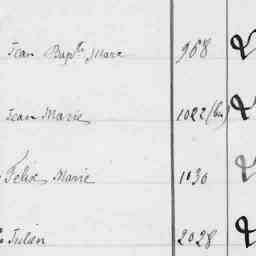 Jean Bap.te Marie 968
Jean Marie 1022 (bis)
Felix Marie 1030
Julien 2028